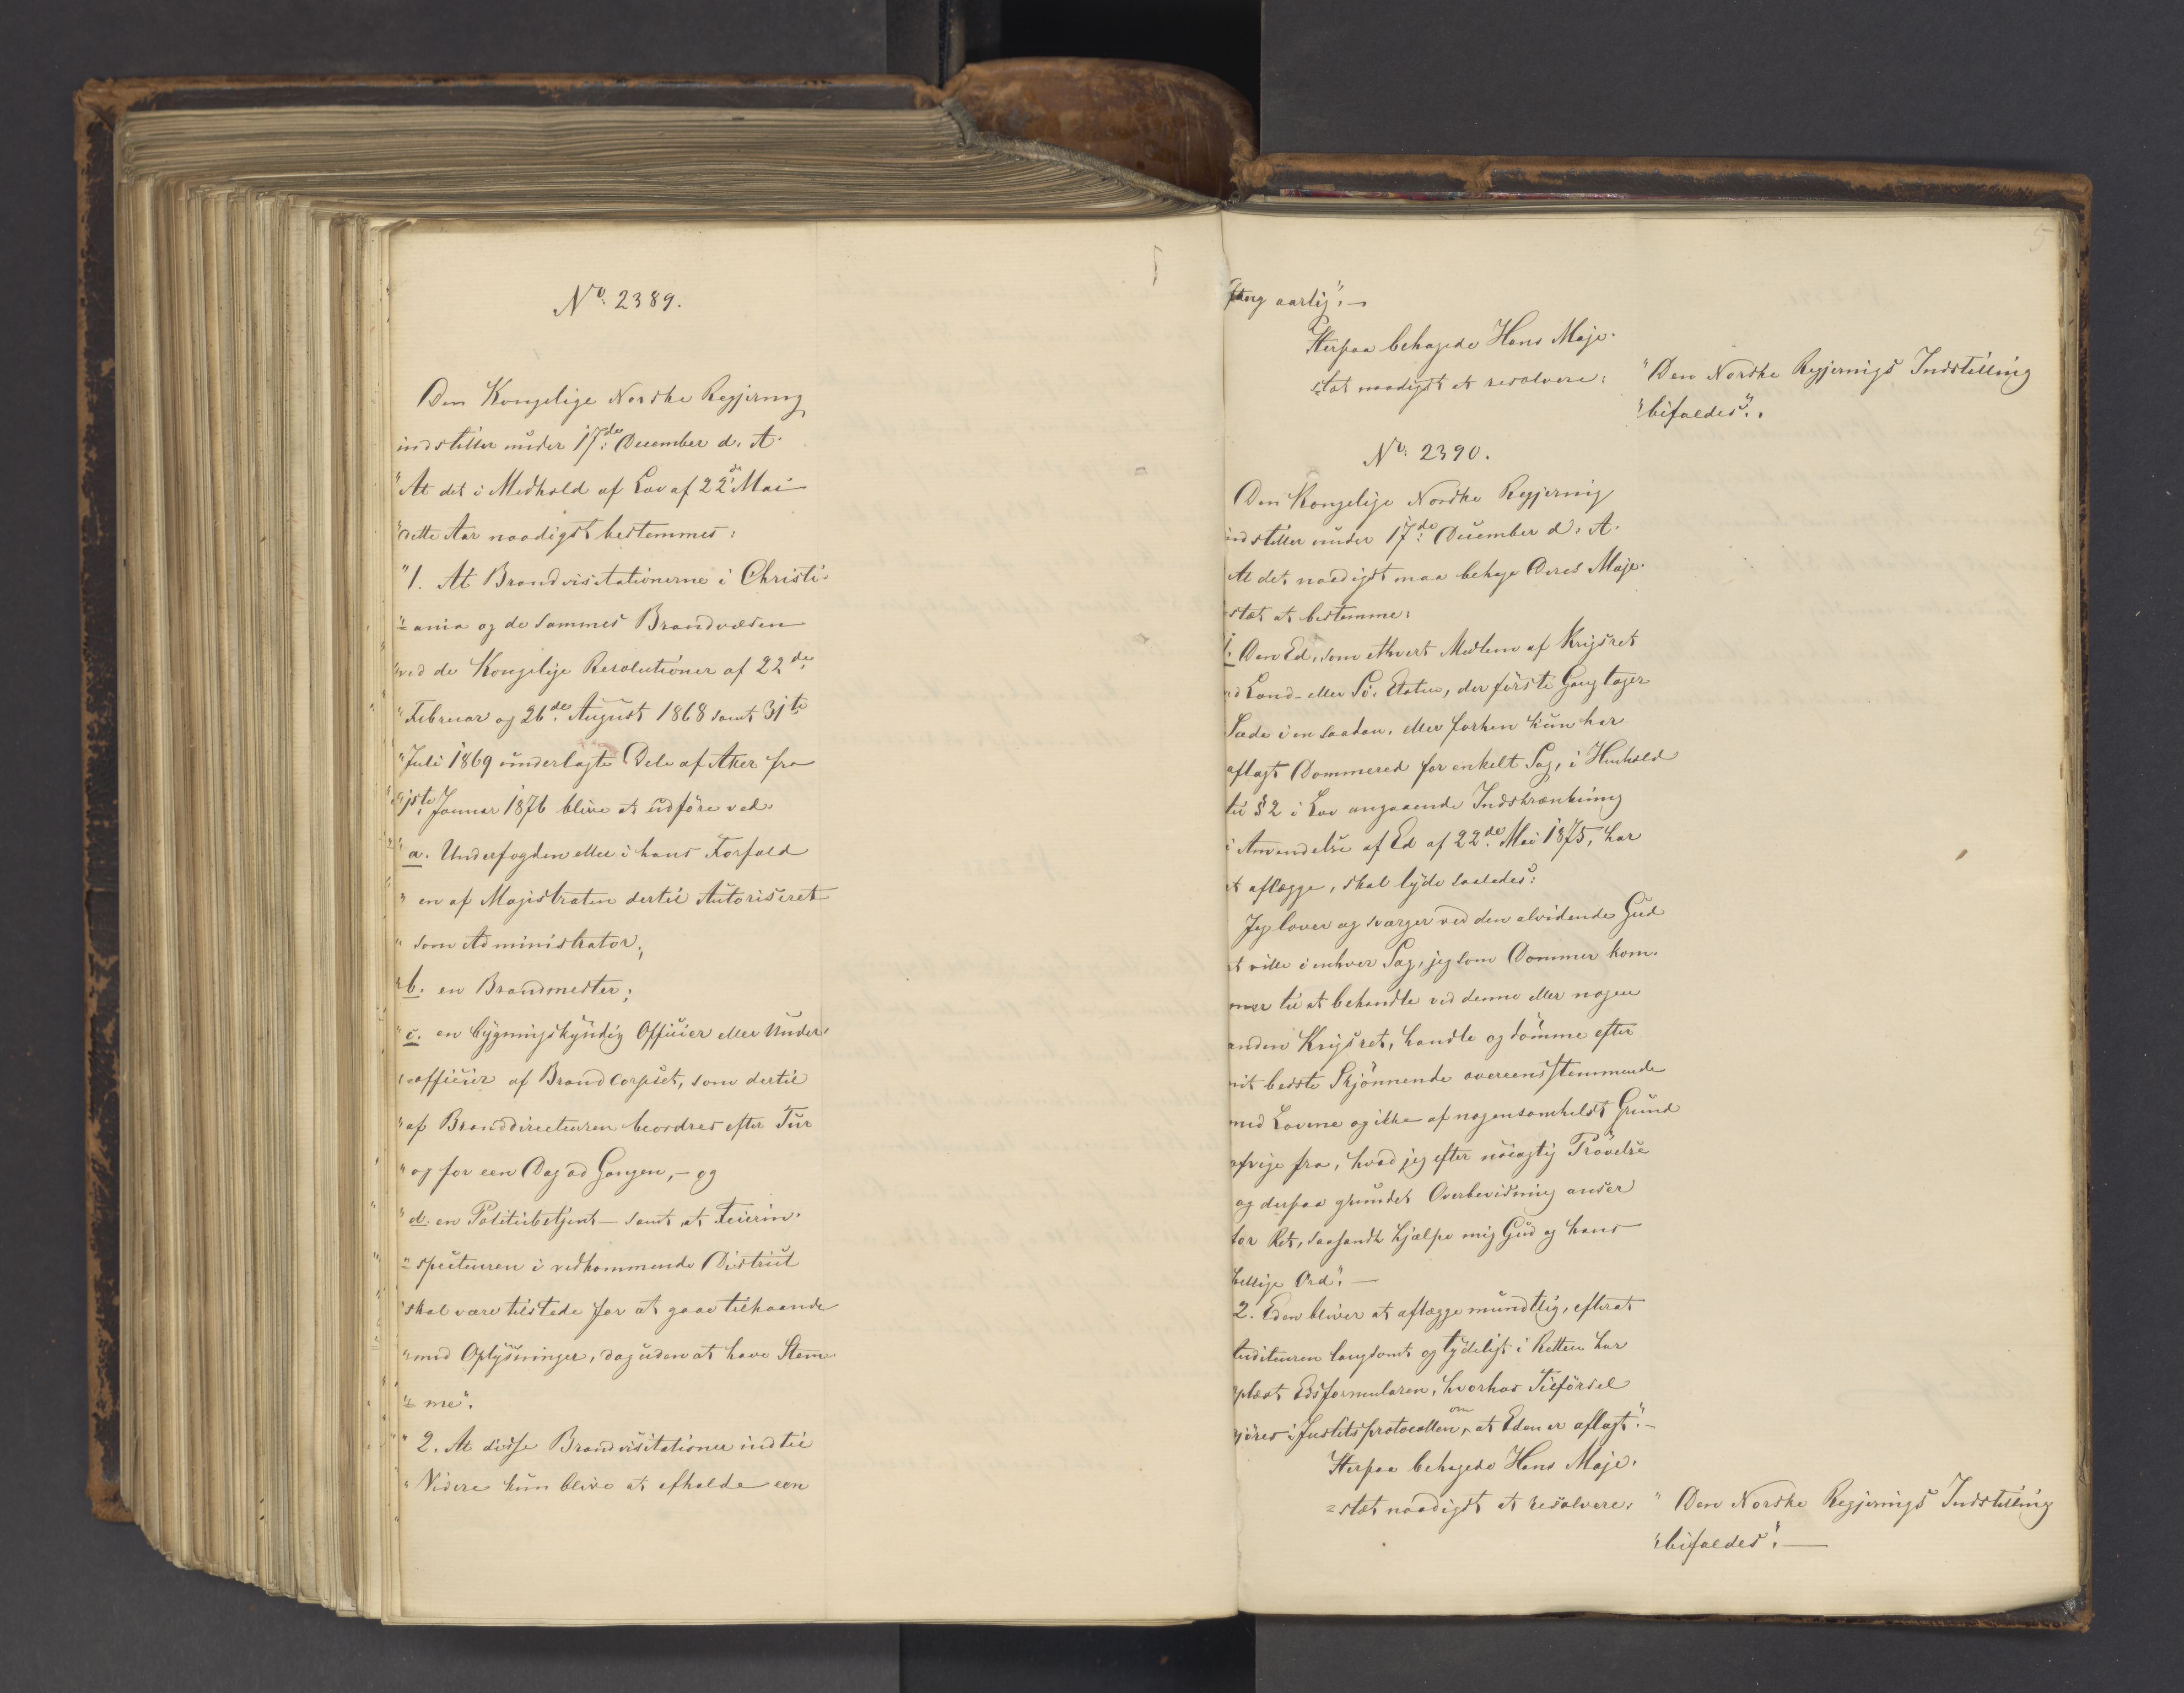 No. 2389.
Den Kongelige Norske Regjering
indstiller under 17de December d. A.
"At det i Medhold af Lov af 22de Mai
"dette Aar naadigst bestemmes:
"1. At Brandvisitationerne i Christi-
"=ania og de sammes Brandvæsen
"ved de Kongelige Resolutioner af 22de
"Februar og 26de August 1868 samt 31te
"Juli 1869 underlagte Dele af Aker fra
"1ste Januar 1876 blive at udføre ved
"a. Underfogden eller i hans Forfald
" en af Magistraten dertil Autoriseret
" som Administrator,
"b. en Brandmester;
"c. en bygningskyndig Officier eller Under-
"=officier af Brandcorpset, som dertil
"af Branddirecteuren beordres efter Tur
"og for een Dag ad Gangen, - og
"d. en Politibetjent - samt at Feierin-
"=specteuren i vedkommende District
"skal være tilstede for at gaae tilhaande
"med Oplysninger, dog uden at have Stem-
"=me".
"2. At disse Brandvisitationer indtil
"Videre kun blive at afholde een
Gang aarlig". -
Herpaa behagede Hans Maje-
=stæt naadigst at resolvere:
"Den Norske Regjerings Indstilling
"bifaldes".
No. 2390.
Den Kongelige Norske Regjering
indstiller under 17de December d. A.
At det naadigst maa behage Deres Maje-
=stæt at bestemme:
1. Den Ed, som ethvert Medlem af Krigsret
ved Land- eller Sø-Etaten, der første Gang tager
Sæde i en saadan, eller forhen kun har
aflagt Dommered for enkelt Sag, i Henhold
til § 2 i Lov angaaende Indskrænkning
i Anvendelse af Ed af 22de Mai 1875, har
at aflægge, skal lyde saaledes:
Jeg lover og sværger ved den alvidende Gud
at ville i enhver Sag, jeg som Dommer kom-
mer til at behandle ved denne eller nogen
anden Krigsret, handle og dømme efter
mit bedste Skjønnende overeensstemmende
med Lovene og ikke af nogensomhelst Grund
afvige fra, hvad jeg efter nøiagtig Prøvelse
og derpaa grundet Overbeviisning anser
for Ret, saasandt hjælpe mig Gud og hans
hellige Ord". -
2. Eden bliver at aflægge mundtlig, efterat
Auditeuren langsomt og tydeligt i Retten har
oplæst Edsformularen, hvorhos Tilførsel
gjøres i Justitsprotocollen om, at Eden er aflagt". -
Herpaa behagede Hans Maje-
=stæt naadigst at resolvere:
" Den Norske Regjerings Indstilling
"bifaldes". -